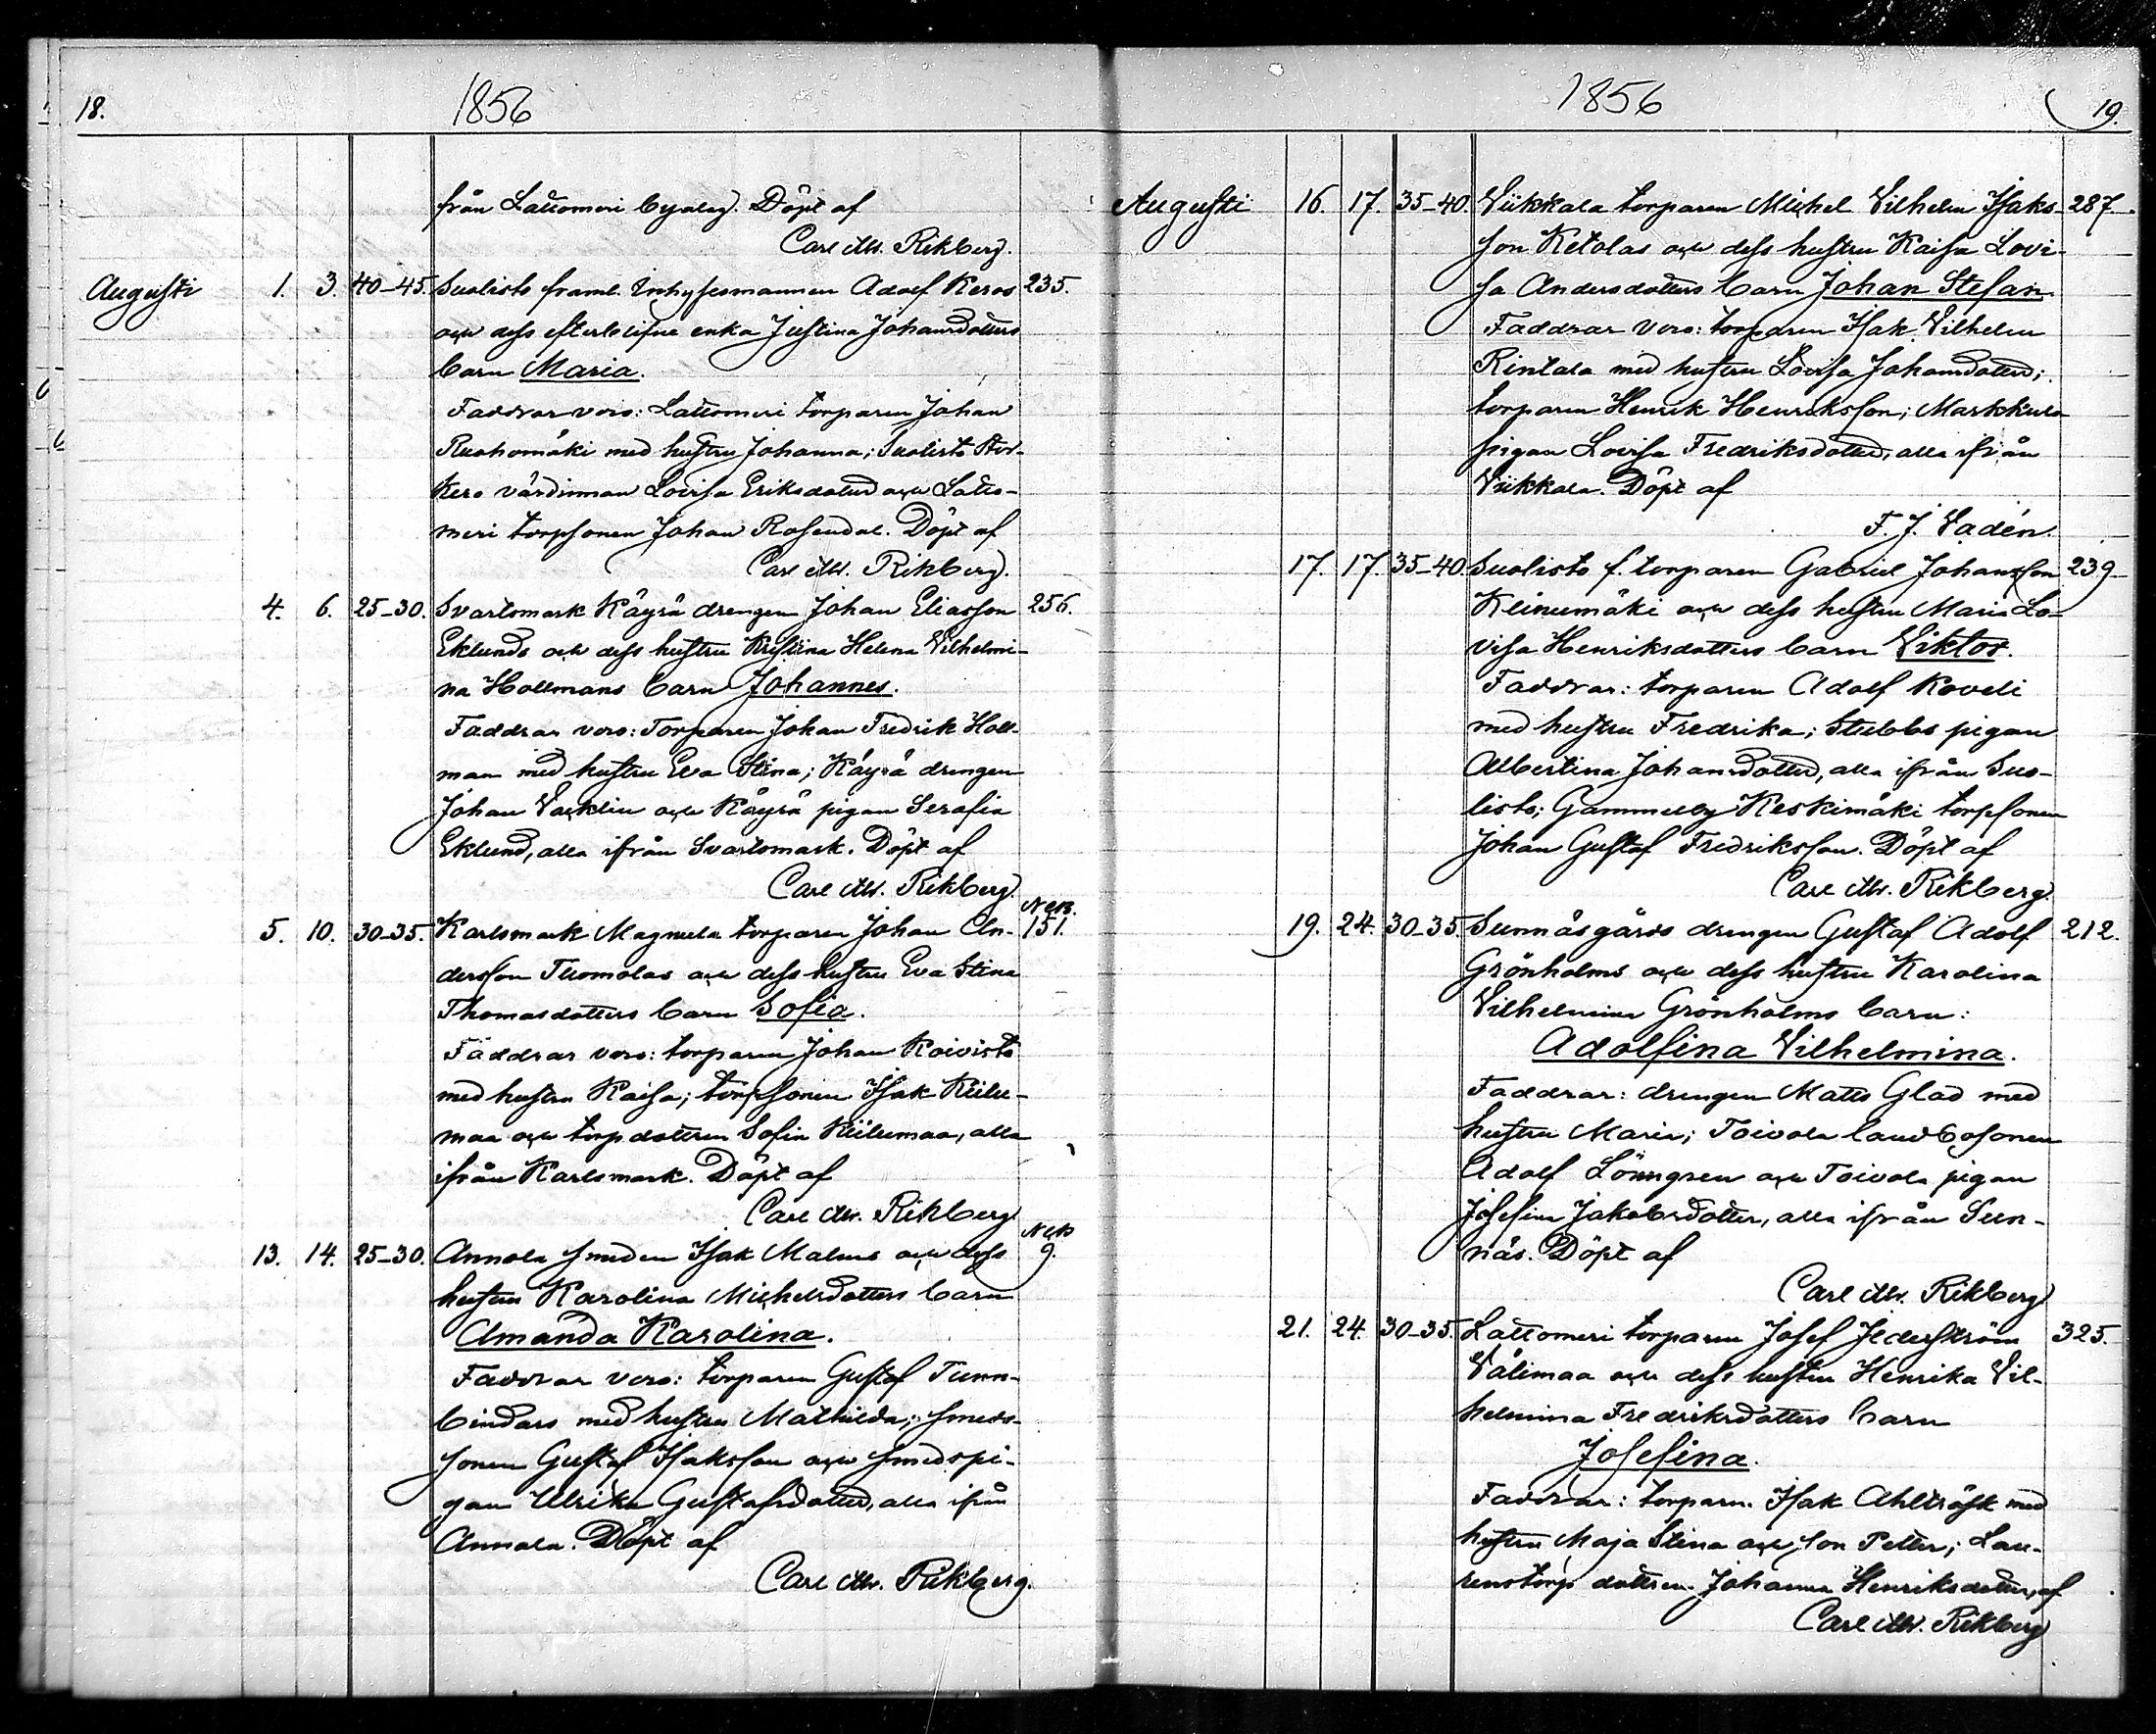 18.
1856
från Lattomeri byalag. Döpt af
Carl M. Rikberg.
Augusti 1. 3. 40–45. Suolisto framl. Inhysesmannen Adolf Keros 235.
och dess efterlefna enka Justina Johansdotters
barn Maria.
Faddrar voro: Lattomeri torparen Johan
Ruohomäki med hustru Johanna; Suolisto Stor-
Kero värdinnan Lovisa Eriksdotter och Latto-
meri torpsonen Johan Rosendal. Döpt af
Carl M. Rikberg.
4. 6. 25–30. Svartsmark Käyrä drengen Johan Eliasson 256.
Eklunds och dess hustru Kristina Helena Vilhelmi-
na Hollmans barn Johannes.
Faddrar voro: Torparen Johan Fredrik Holl-
man med hustru Eva Stina; Käyrä drengen
Johan Vacklin och Käyrä pigan Serafia
Eklund, alla ifrån Svartsmark. Döpt af
Carl M. Rikberg.
5. 10. 30–35. Karlsmark Magnula torparen Johan An- 151.
dersson Tuomolas och dess hustru Eva Stina
Thomasdotters barn Sofia.
Faddrar voro: torparen Johan Koivisto
med hustru Kaisa; torpsonen Isak Kiilu-
maa och torpdottern Sofia Kiilumaa, alla
ifrån Karlsmark. Döpt af
Carl M. Rikberg
13. 14. 25–30. Annola smeden Isak Malms och dess 9.
hustru Karolina Michelsdotters barn
Amanda Karolina.
Faddrar voro: torparen Gustaf Tunn-
bindars med hustru Mathilda; smeds-
sonen Gustaf Isaksson och smedspi-
gan Ulrika Gustafsdotter, alla ifrån
Annola. Döpt af
Carl M. Rikberg.
1856
19.
Augusti 16. 17. 35–40. Viikkala torparen Michel Vilhelm Isaks- 287.
son Ketolas och dess hustru Kaisa Lovi-
sa Andersdotters barn Johan Stefan.
Faddrar voro: torparen Isak Vilhelm
Rintala med hustru Lovisa Johansdotter;
torparen Henrik Henriksson; Markkula
pigan Lovisa Fredriksdotter, alla ifrån
Viikkala. Döpt af
F. J. Vadén.
17. 17. 35–40. Suolisto f. torparen Gabriel Johansson 239
Keinumäki och dess hustru Maria Lo-
visa Henriksdotters barn Viktor.
Faddrar: torparen Adolf Koveli
med hustru Fredrika; Stubbs pigan
Albertina Johansdotter, alla ifrån Suo-
listo; Gammelby Keskimäki torpsonen
Johan Gustaf Fredriksson. Döpt af
Carl M. Rikberg.
19. 24. 30–35. Sunnäsgårds drengen Gustaf Adolf 212.
Grönholms och dess hustru Karolina
Vilhelmina Grönholms barn:
Adolfina Vilhelmina.
Faddrar: drengen Matts Glad med
hustru Maria; Toivola landbosonen
Adolf Lönngren och Toivola pigan
Josefina Jakobsdotter, alla ifrån Sun-
näs. Döpt af
Carl M. Rikberg
21. 24. 30–35. Lattomeri torparen Josef Jederström 325.
Välimaa och dess hustru Henrika Vil-
helmina Fredriksdotters barn
Josefina.
Faddrar: torparn. Isak Ahlträsk med
hustru Maja Stina och son Petter; Lau-
renstorps dottren Johanna Henriksdotter, af
Carl M. Rikberg